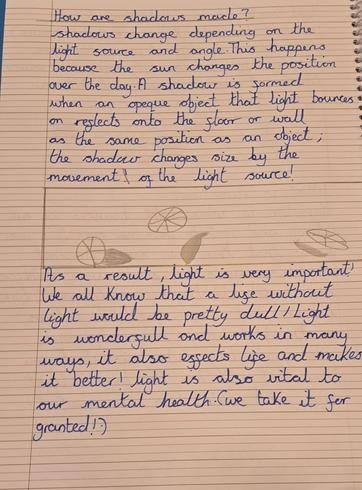 How are shadows made?
shadows change depending on the
light source and angle. This happens
because the sun changes the position
over the day. A shadow is formed
when an opeque object that light bounces
on reglects onto the floor or wall
as the same position as an object;
the shadow changes size by the
movement! of the light source!
As a result, light is very important!
We all know that a life without
light would be pretty dull! Light
is wonderfull and works in many
ways, it also effects life and makes
it better! light is also vital to
our mental health. (we take it for
granted!)